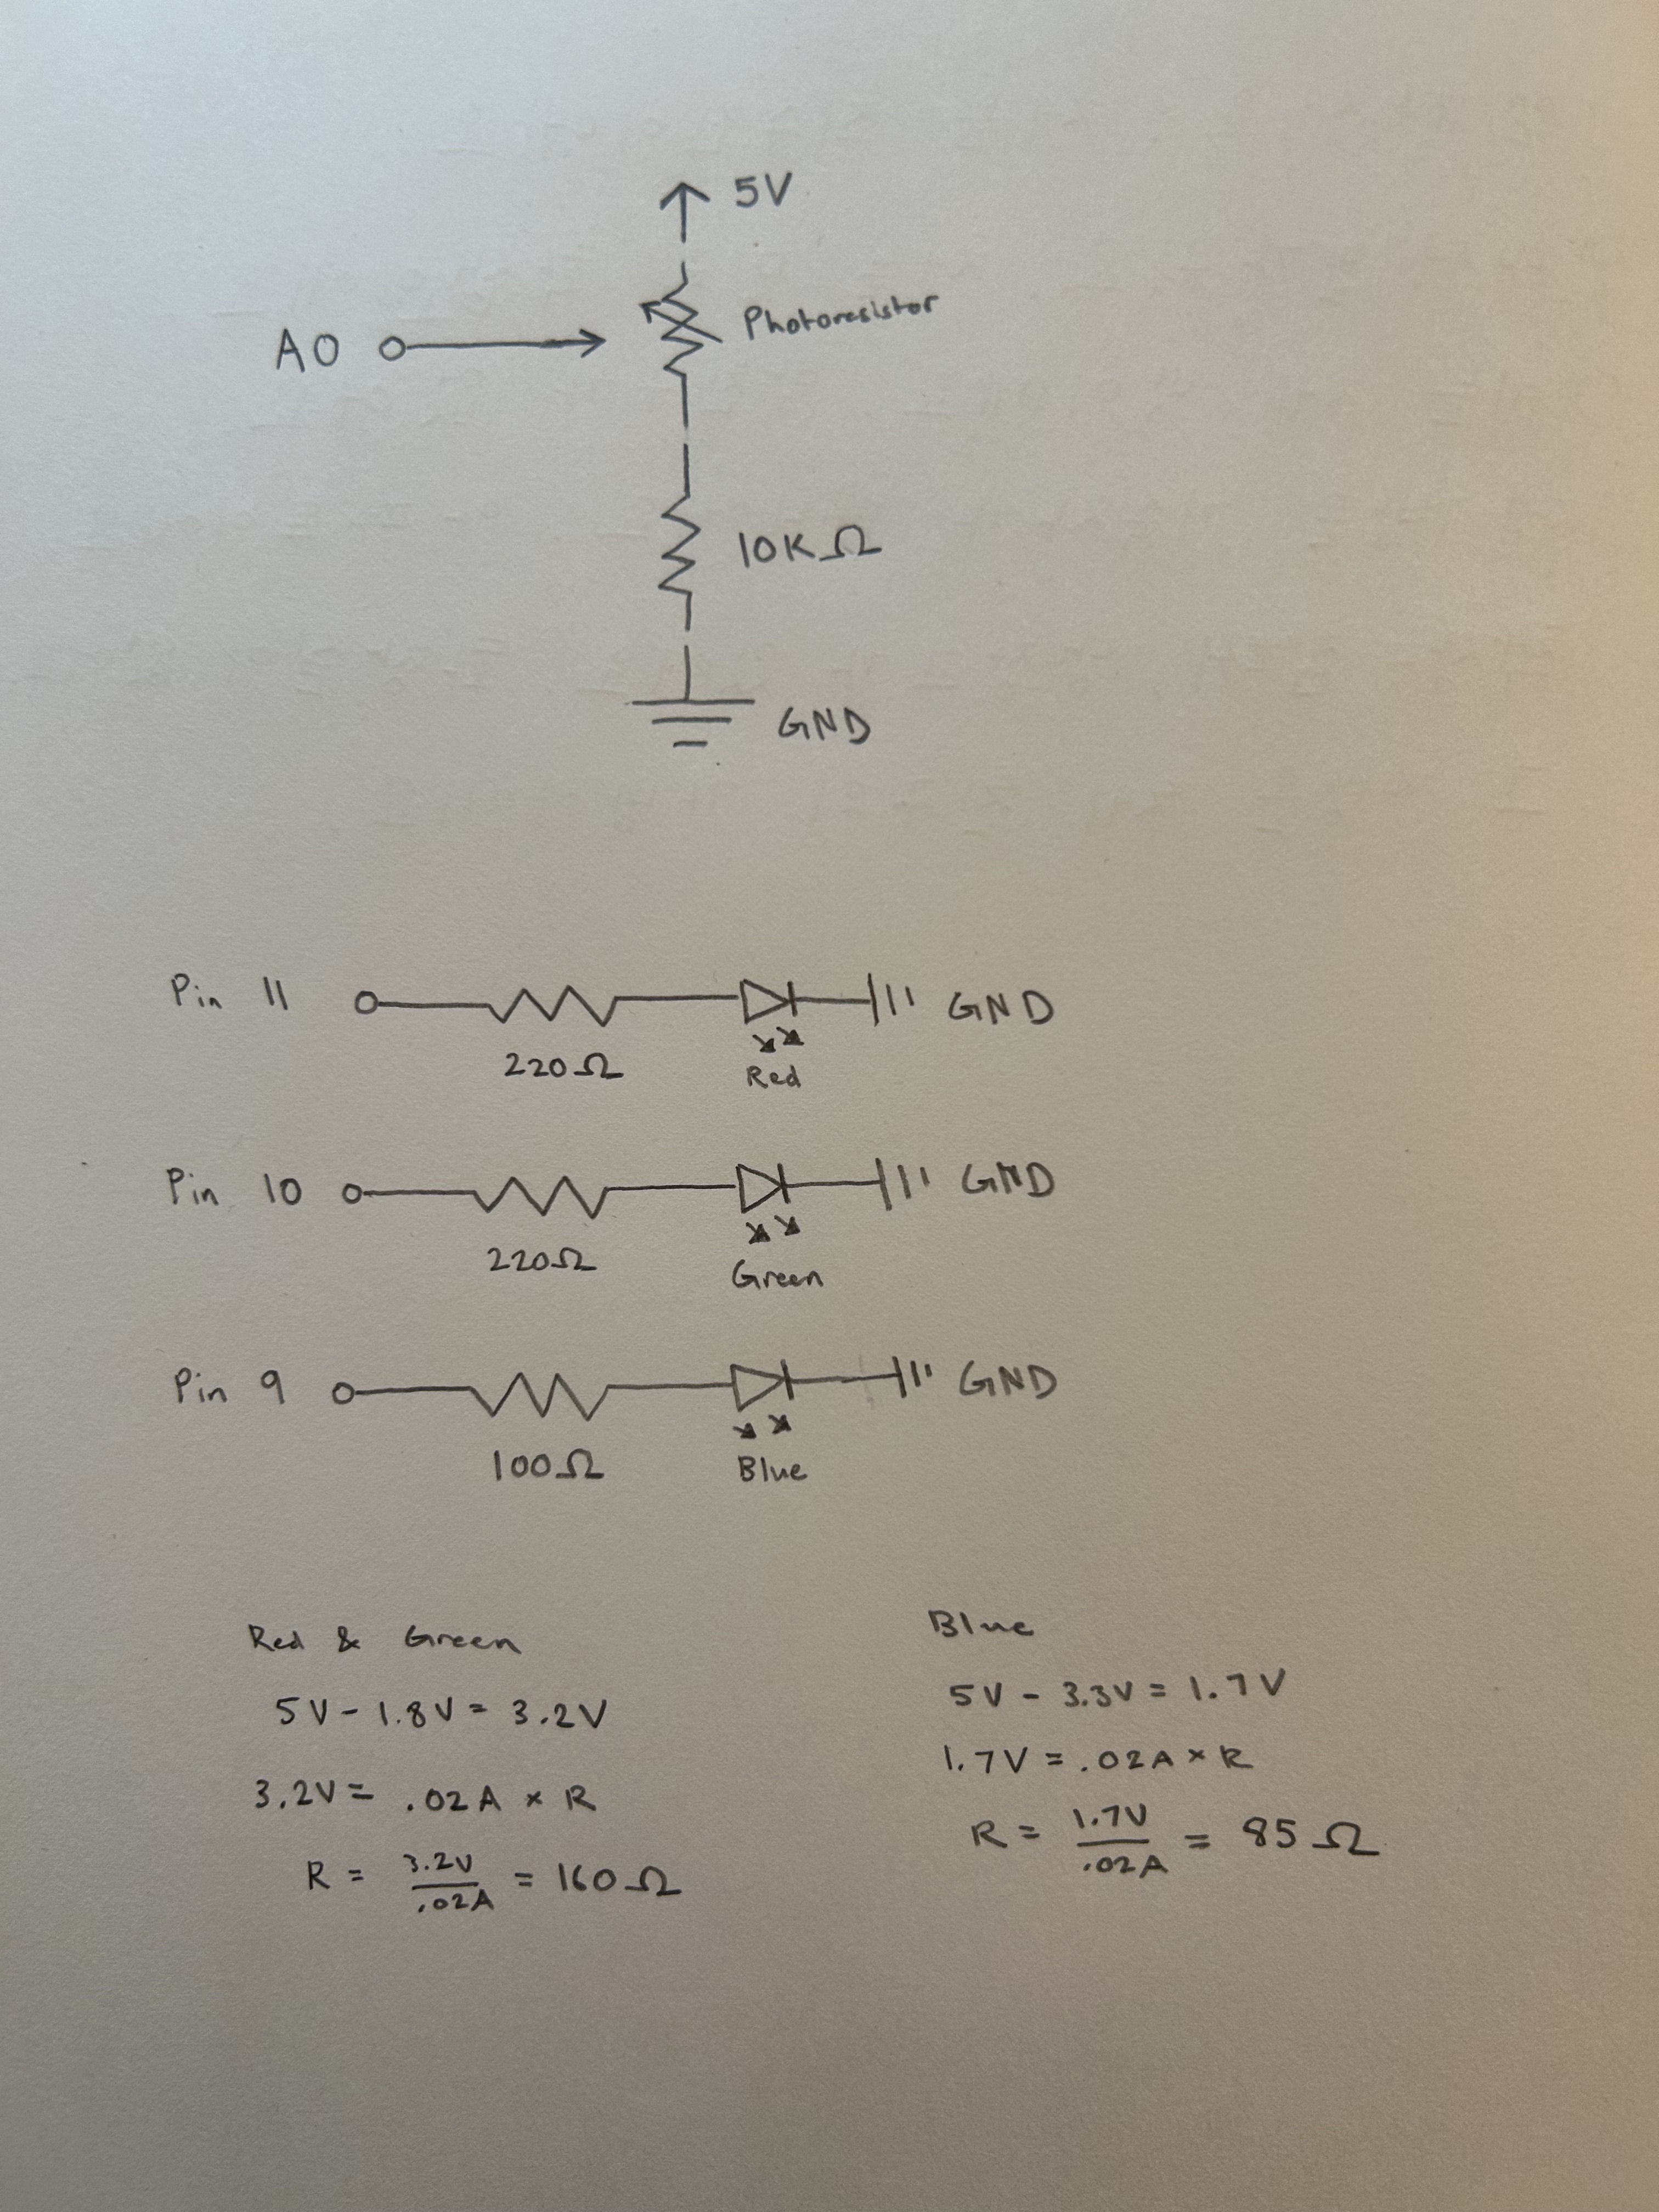 5V
A0
Photoresistor
10KΩ
GND
Pin 11
GND
220Ω
Red
Pin 10
GND
220Ω
Green
Pin 9
GND
100Ω
Blue
Red & Green
5V - 1.8V = 3.2V
3.2V = .02A × R
R = 3.2V/.02A = 160Ω
Blue
5V - 3.3V = 1.7V
1.7V = .02A × R
R = 1.7V/.02A = 85Ω